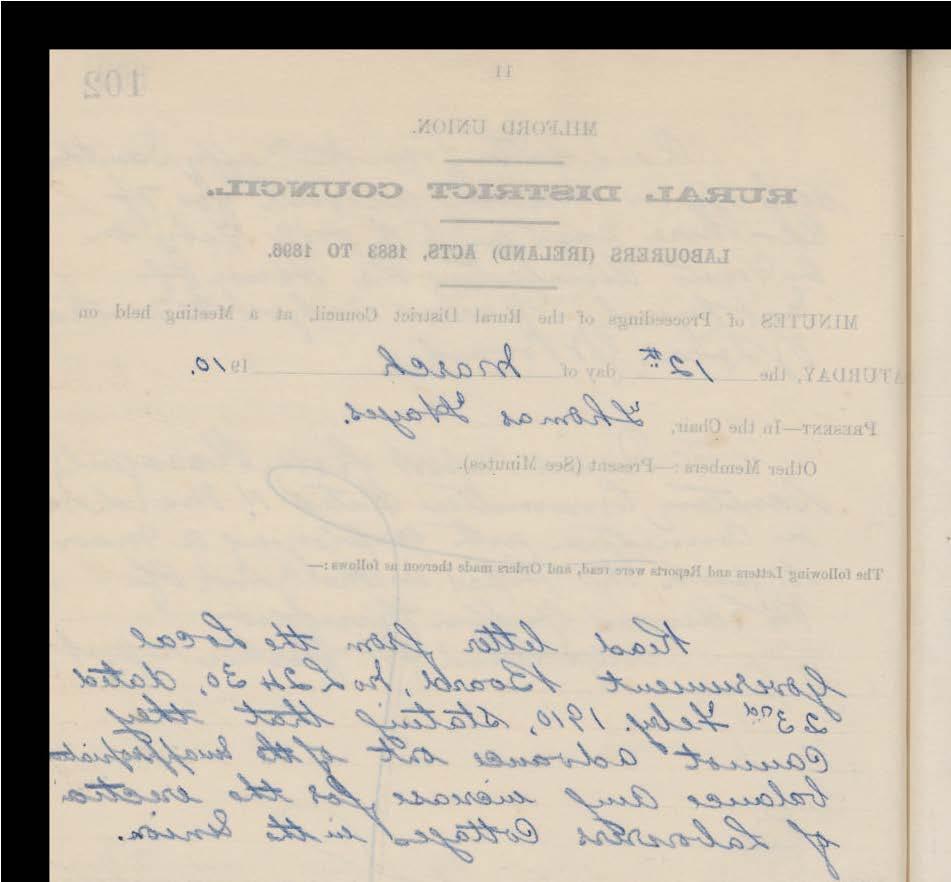 11
102
MILFORD UNION.
RURAL DISTRICT COUNCIL.
LABOURERS (IRELAND) ACTS, 1883 TO 1896.
MINUTES of Proceedings of the Rural District Council, at a Meeting held on
ATURDAY, the 12th day of March 1910.
PRESENT—In the Chair, Thomas Hayes.
Other Members :—Present (See Minutes).
The following Letters and Reports were read, and Orders made thereon as follows:—
Read letter from the Local
Government Board, No L2430, dated
23rd Feby. 1910, stating that they
Cannot advance out of the
balance any increase for the
of Labourers Cottages in the Union.